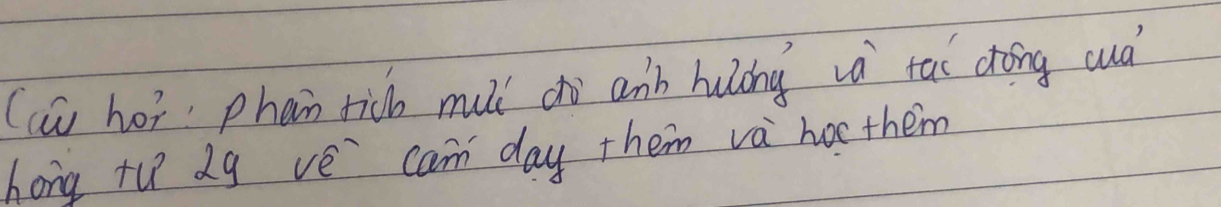 Câu hỏi: phân tích mức độ ảnh hưởng và tác động của
hông tư 29 về cấm dạy thêm và học thêm